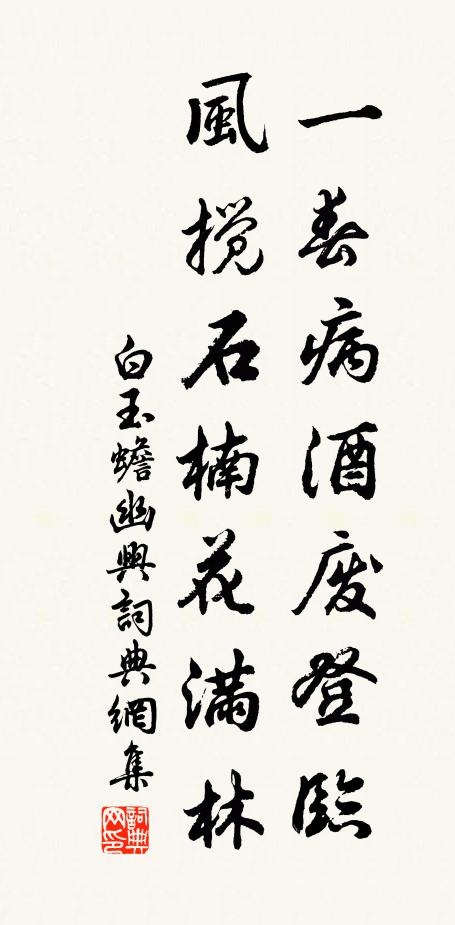 一春病酒废登臨
風搅石楠花满林
白玉蟾幽興詞典網集
詞典网印